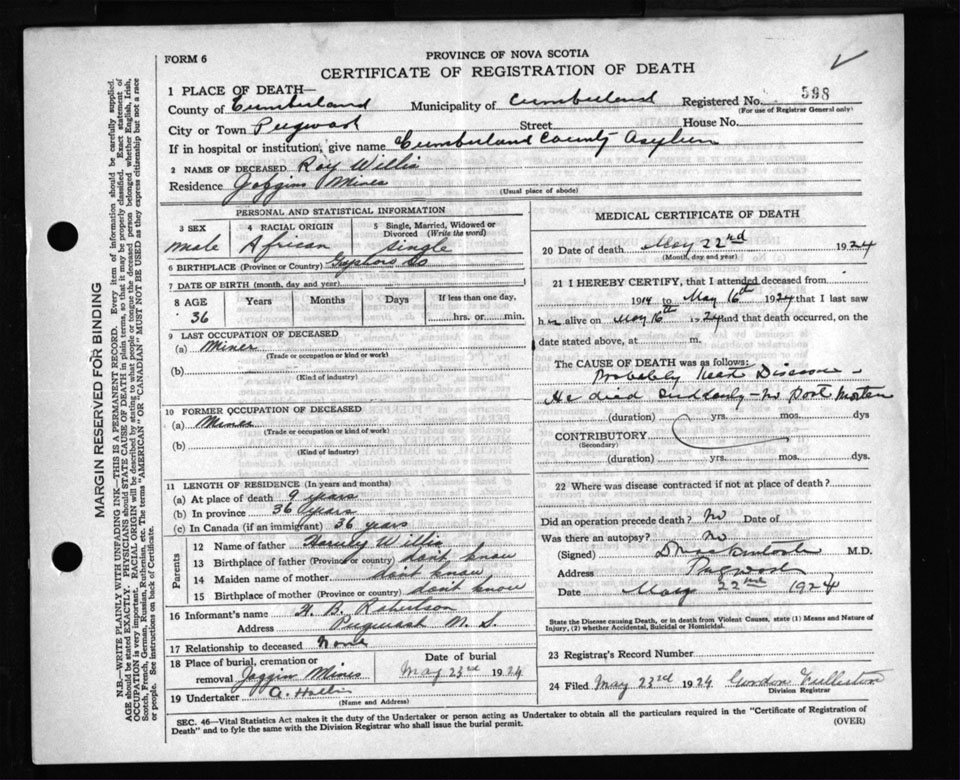 FORM 6
PROVINCE OF NOVA SCOTIA
CERTIFICATE OF REGISTRATION OF DEATH
1 PLACE OF DEATH—
County of Cumberland Municipality of Cumberland Registered No. 598
(For use of Registrar General only)
City or Town Pugwash Street House No.
If in hospital or institution, give name Cumberland County Asylum
2 NAME OF DECEASED Roy Willis
Residence Joggins Mines
(Usual place of abode)
PERSONAL AND STATISTICAL INFORMATION
3 SEX Male
4 RACIAL ORIGIN African
5 Single, Married, Widowed or Divorced (Write the word) Single
6 BIRTHPLACE (Province or Country)
7 DATE OF BIRTH (month, day and year)
8 AGE Years Months Days If less than one day,
36 hrs. or min.
9 LAST OCCUPATION OF DECEASED
(a) Miner
(Trade or occupation or kind or work)
(b)
(Kind of industry)
10 FORMER OCCUPATION OF DECEASED
(a) Miner
(Trade or occupation or kind of work)
(b)
(Kind of industry)
11 LENGTH OF RESIDENCE (In years and months)
(a) At place of death 9 years
(b) In province 36 years
(c) In Canada (if an immigrant) 36 years
Parents
12 Name of father Harvey Willis
13 Birthplace of father (Province or country) dont know
14 Maiden name of mother dont know
15 Birthplace of mother (Province or country) don't know
16 Informant's name H. B. Robertson
Address Pugwash N. S.
17 Relationship to deceased None
18 Place of burial, cremation or removal Joggin Mines
Date of burial
May 23rd 1924
19 Undertaker A.
(Name and Address)
MEDICAL CERTIFICATE OF DEATH
20 Date of death May 22nd 1924
(Month, day and year)
21 I HEREBY CERTIFY, that I attended deceased from
1914 to May 16th 1924 that I last saw
h alive on May 16th 1924 and that death occurred, on
date stated above, at m.
The CAUSE OF DEATH was as follows:
Probably Heart Disease -
He died suddenly - no Post Mortem
(duration) yrs. mos. dys
CONTRIBUTORY
(Secondary)
(duration) yrs. mos. dys.
22 Where was disease contracted if not at place of death?
Did an operation precede death? No Date of
Was there an autopsy? No
(Signed) M.D.
Address Pugwash
Date May 22nd 1924
State the Disease causing Death, or in death from Violent Causes, state (1) Means and Nature of
Injury, (2) whether Accidental, Suicidal or Homicidal.
23 Registrar's Record Number
24 Filed May 23rd 1924 Gordon
Division Registrar
SEC. 46—Vital Statistics Act makes it the duty of the Undertaker or person acting as Undertaker to obtain all the particulars required in the "Certificate of Registration of
Death" and to fyle the same with the Division Registrar who shall issue the burial permit.
(OVER)
MARGIN RESERVED FOR BINDING
N.B.—WRITE PLAINLY WITH UNFADING INK—THIS IS A PERMANENT RECORD. Every item of information should be carefully supplied.
AGE should be stated EXACTLY. PHYSICIANS should STATE CAUSE OF DEATH in plain terms, so that it may be properly classified. Exact statement of
OCCUPATION is very important. RACIAL ORIGIN will be described by stating to what people or tongue the deceased person belonged, whether English, Irish,
Scotch, French, German, Russian, Ruthenian, etc. The terms "AMERICAN" OR "CANADIAN" MUST NOT BE USED as they express citizenship but not a race
or people. See instructions on back of Certificate.